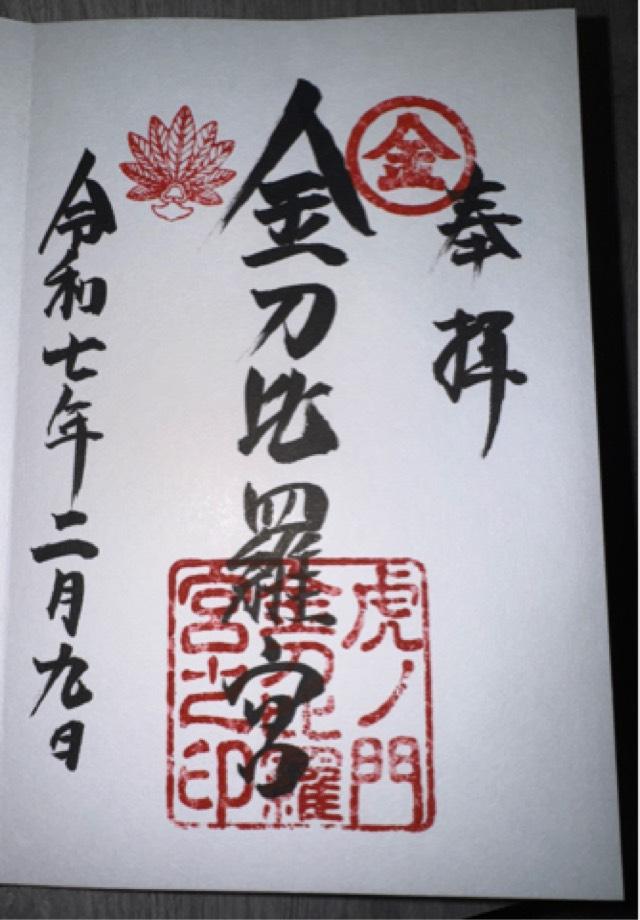 奉拝
金
金刀比羅宮
虎ノ門
金刀比羅
宮之印
令和七年二月九日